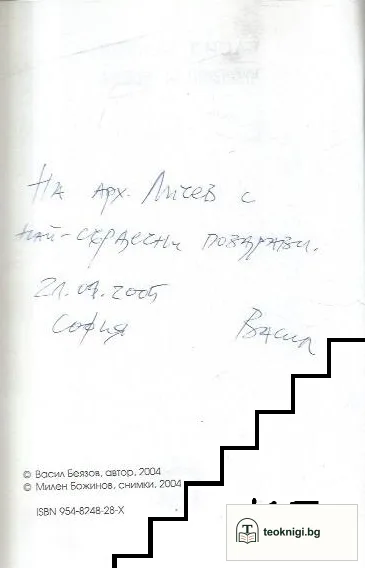 На арх. Личев с
най-сърдечни поздрави.
21.09.2005
София Васил
© Васил Беязов, автор, 2004
© Милен Божинов, снимки, 2004
ISBN 954-8248-28-X
teoknigi.bg